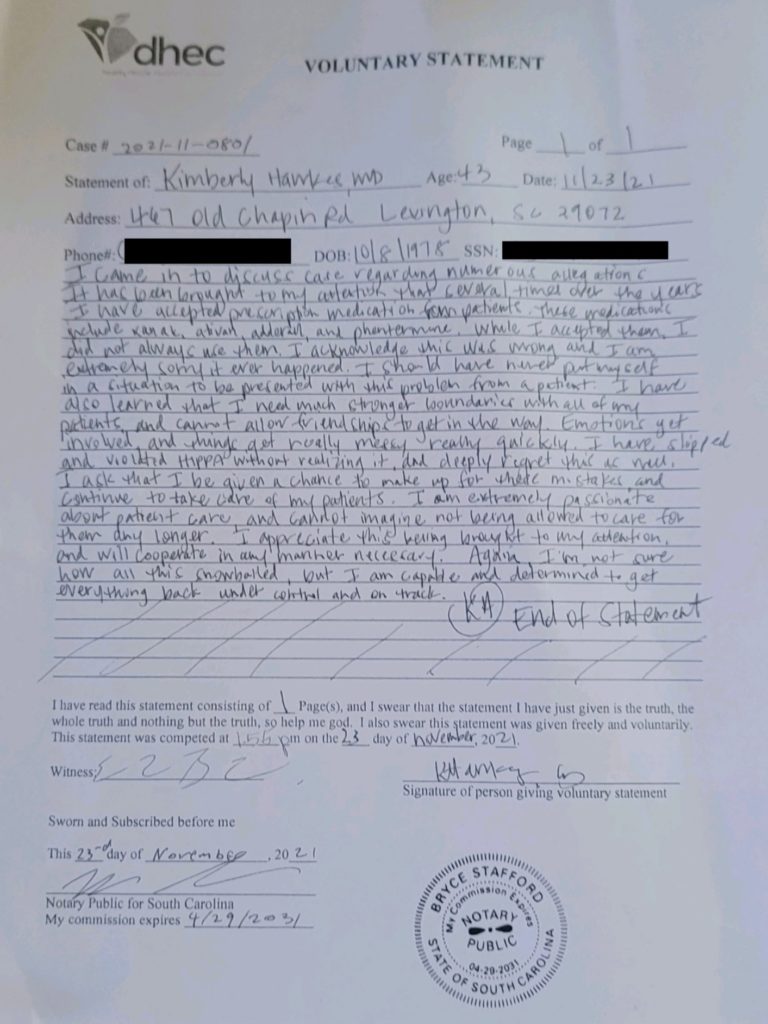 dhec
VOLUNTARY STATEMENT
Case # 2021-11-0801 Page 1 of 1
Statement of: Kimberly Hawkes, MD Age: 43 Date: 11/23/21
Address: 447 Old Chapin Rd Lexington, SC 29072
Phone#: DOB: 10/8/1978 SSN:
I came in to discuss case regarding numerous allegations
It has been brought to my attention that several times over the years
I have accepted prescription medication from patients. These medications
include xanax, ativan, adderall, and phentermine. While I accepted them, I
did not always use them. I acknowledge this was wrong and I am
extremely sorry it ever happened. I should have never put myself
in a situation to be presented with this problem from a patient. I have
also learned that I need much stronger boundaries with all of my
patients, and cannot allow friendships to get in the way. Emotions get
involved, and things get really messy really quickly. I have slipped
and violated HIPPA without realizing it, and deeply regret this as well.
I ask that I be given a chance to make up for these mistakes, and
continue to take care of my patients. I am extremely passionate
about patient care, and cannot imagine not being allowed to care for
them any longer. I appreciate this being brought to my attention,
and will cooperate in any manner neccecary. Again, I'm not sure
how all this snowballed, but I am capable and determined to get
everything back under control and on track. KH End of Statement
I have read this statement consisting of 1 Page(s), and I swear that the statement I have just given is the truth, the
whole truth and nothing but the truth, so help me god. I also swear this statement was given freely and voluntarily.
This statement was competed at 1:55 pm on the 23 day of november, 2021.
Witness:
Signature of person giving voluntary statement
Sworn and Subscribed before me
This 23rd day of November, 2021
Notary Public for South Carolina
My commission expires 4/29/2031
BRYCE STAFFORD
My Commission Expires
NOTARY
PUBLIC
04-29-2031
STATE OF SOUTH CAROLINA